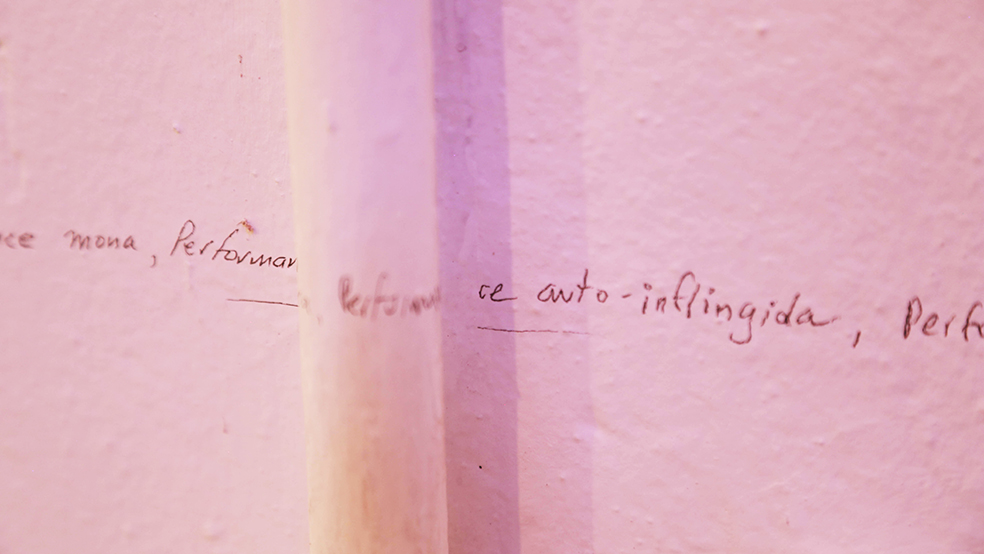 ce mona, Performan Perform ce auto-inflingida, Perfo